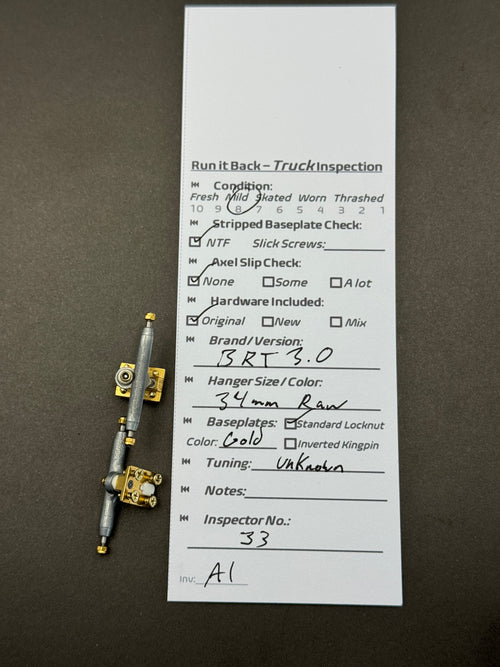 Run it Back – Truck Inspection
Condition:
Fresh Mild Skated Worn Thrashed
10 9 8 7 6 5 4 3 2 1
Stripped Baseplate Check:
NTF Slick Screws:
Axel Slip Check:
None Some A lot
Hardware Included:
Original New Mix
Brand/Version:
BRT 3.0
Hanger Size/Color:
34mm Raw
Baseplates: Standard Locknut
Color: Gold Inverted Kingpin
Tuning: unknown
Notes:
Inspector No.:
33
Inv: A1